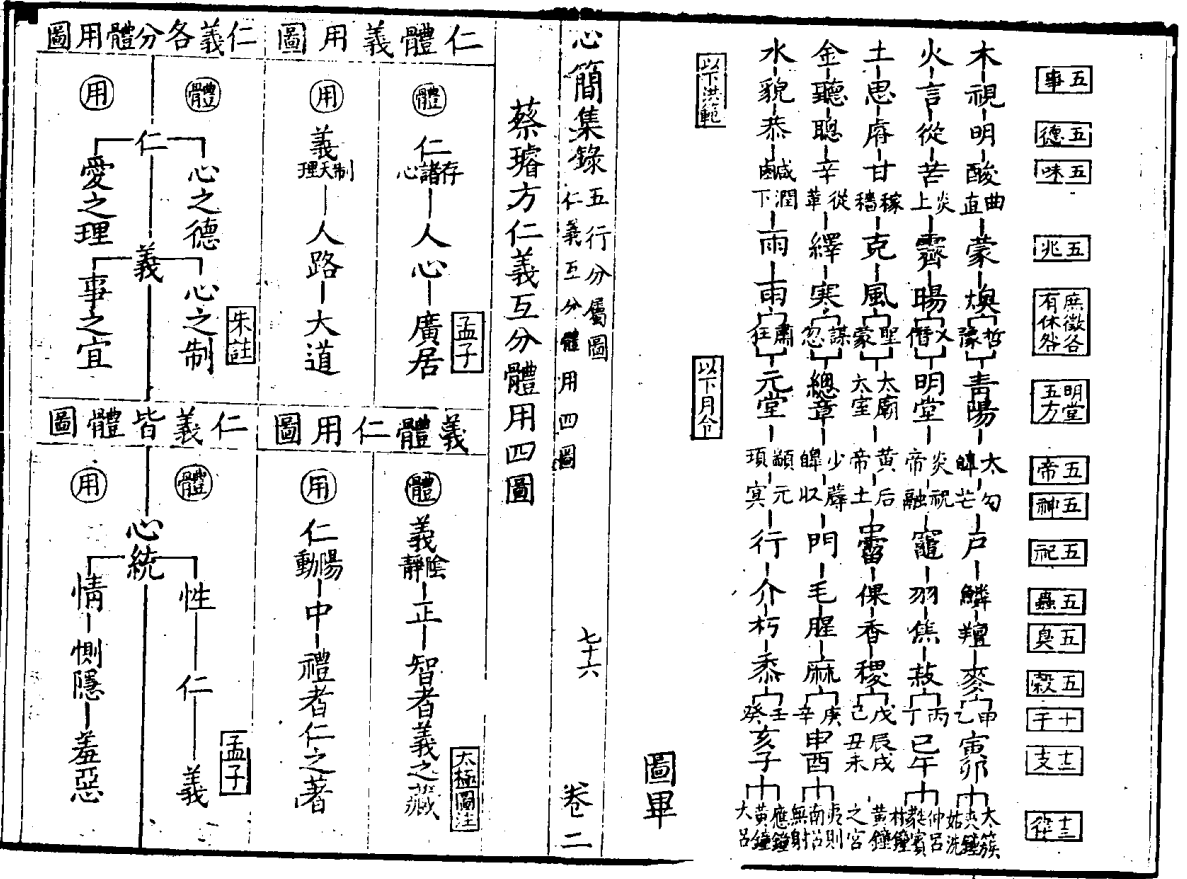 五事
五德
五味
五兆
庶徵各有休咎
明堂五方
五帝
五神
五祀
五蟲
五臭
五穀
十干
十二支
十二律
木 視 明 酸 曲直 蒙 燠 哲 豫 青陽 太皥 勾芒 戶 鱗 羶 麥 甲乙 寅卯 太簇 夾鍾 姑洗
火 言 從 苦 炎上 霽 暘 乂 僭 明堂 炎帝 祝融 竈 羽 焦 菽 丙丁 巳午 仲呂 蕤賓 林鍾
土 思 睿 甘 稼穡 克 風 聖 蒙 太廟太室 黃帝 后土 中霤 倮 香 稷 戊己 辰戌丑未 黃鍾之宮
金 聽 聰 辛 從革 繹 寒 謀 忽 總章 少皥 蓐收 門 毛 腥 麻 庚辛 申酉 夷則 南呂 無射
水 貌 恭 鹹 潤下 雨 雨 肅 狂 元堂 顓頊 元冥 行 介 朽 黍 壬癸 亥子 應鍾 黃鍾 大呂
以下洪範
以下月令
圖畢
心簡集錄 五行分屬圖 仁義互分體用四圖 七十六 卷二
蔡璿方仁義互分體用四圖
仁體義用圖
體 仁 存諸心 人心 廣居
孟子
用 義 制天理 人路 大道
仁義各分體用圖
體 仁 心之德 義 心之制
朱註
用 愛之理 事之宜
義體仁用圖
體 義 陰靜 正 智者義之藏
太極圖注
用 仁 陽動 中 禮者仁之著
仁義皆體圖
體 心統 性 仁 義
孟子
用 情 惻隱 羞惡